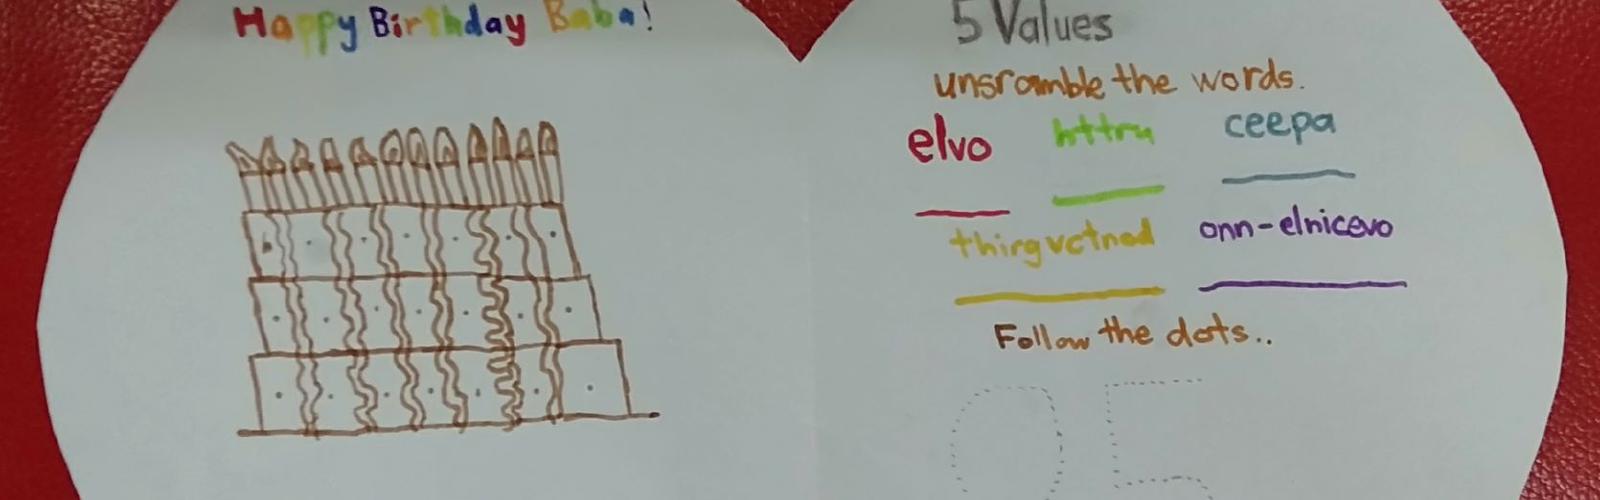 Happy Birthday Baba!
5 Values
unsramble the words.
elvo httru ceepa
thirgvctnod onn-elnicevo
Follow the dots..
95